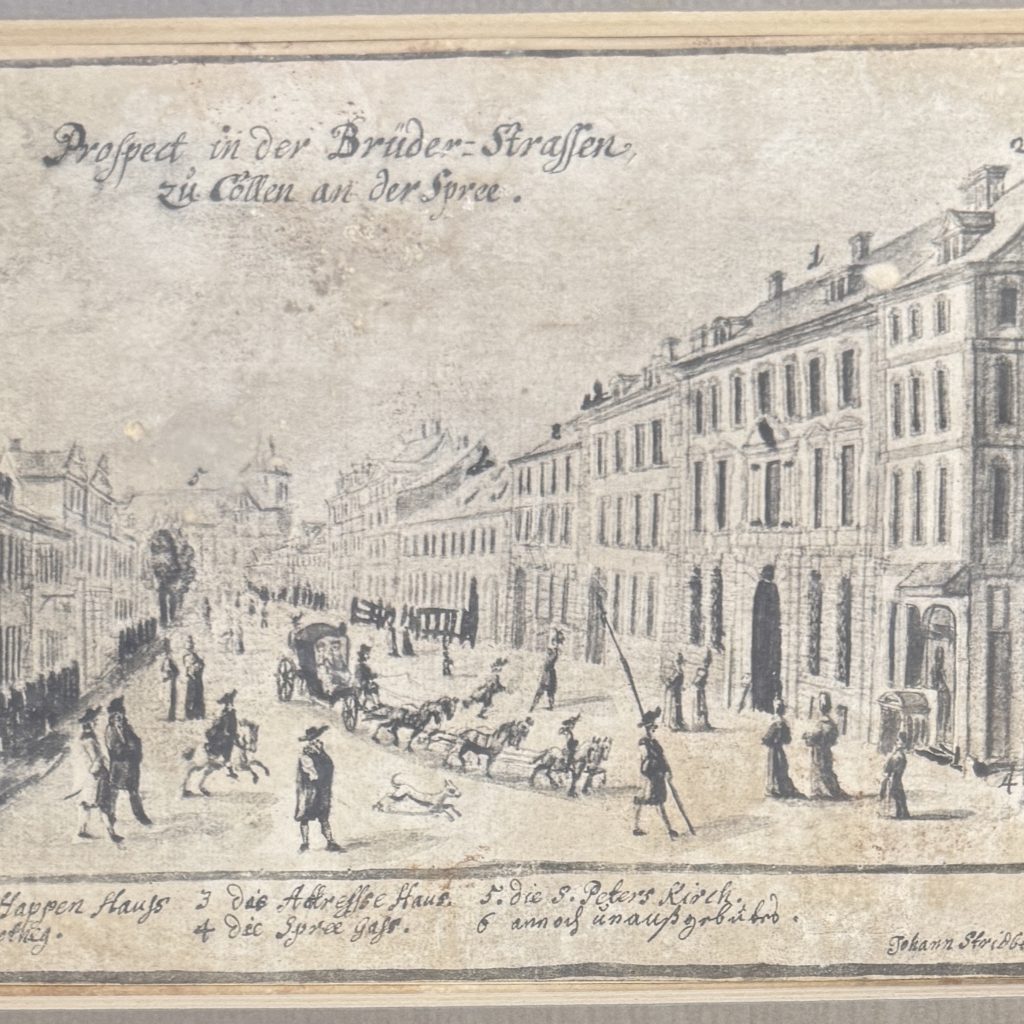 Proſpect in der Brüder-Straſſen,
zu Cöllen an der Spree.
2
1
4
Happen Hauß 3 das Adreſſe Hauß. 5. die S. Peters Kirch.
4 die Spree Gaſs. 6 annoch unaußgebutes.
Johann Stridbe